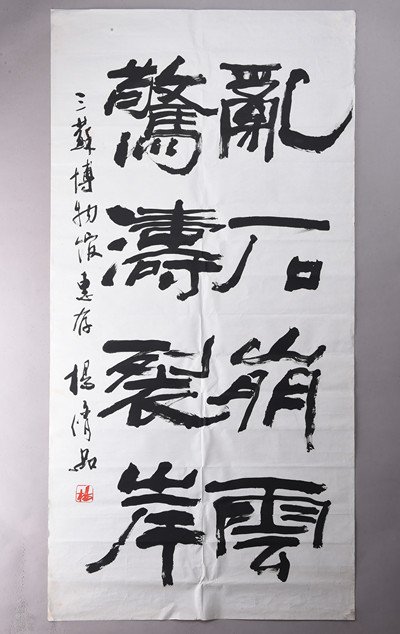 亂石崩雲
驚濤裂岸
三蘇博物館惠存 楊脩品
楊